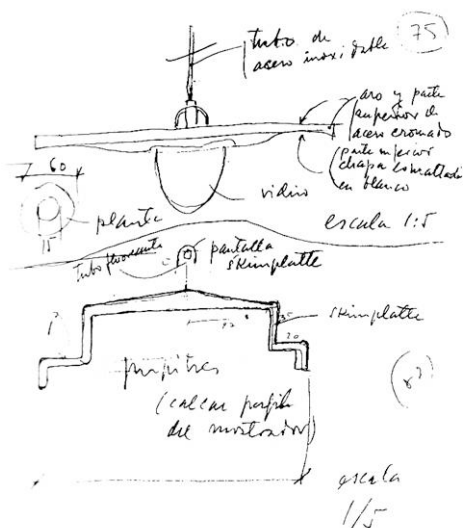 tubo de
acero inoxidable
75
aro y parte
superior de
acero cromado
parte inferior
chapa esmaltada
en blanco
60
vidrio
planta
15
escala 1:5
tubo fluorescente
pantalla
skinplatte
skinplatte
20
pupitres
(calcar perfil
del mostrador)
escala
1/5